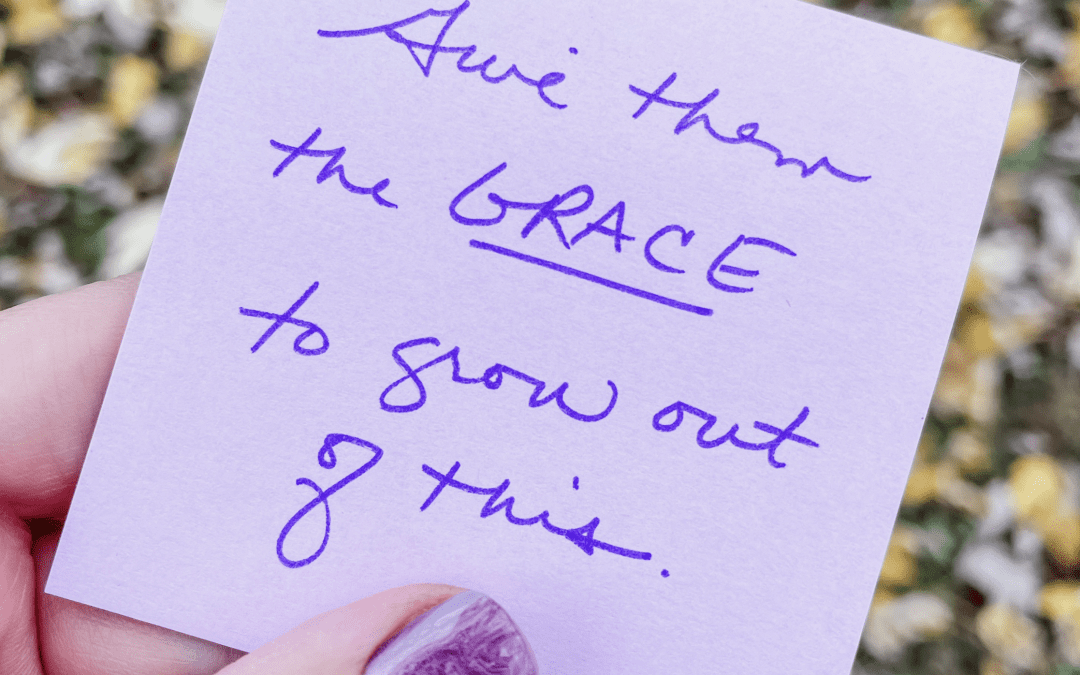 Give them
the GRACE
to grow out
of this.